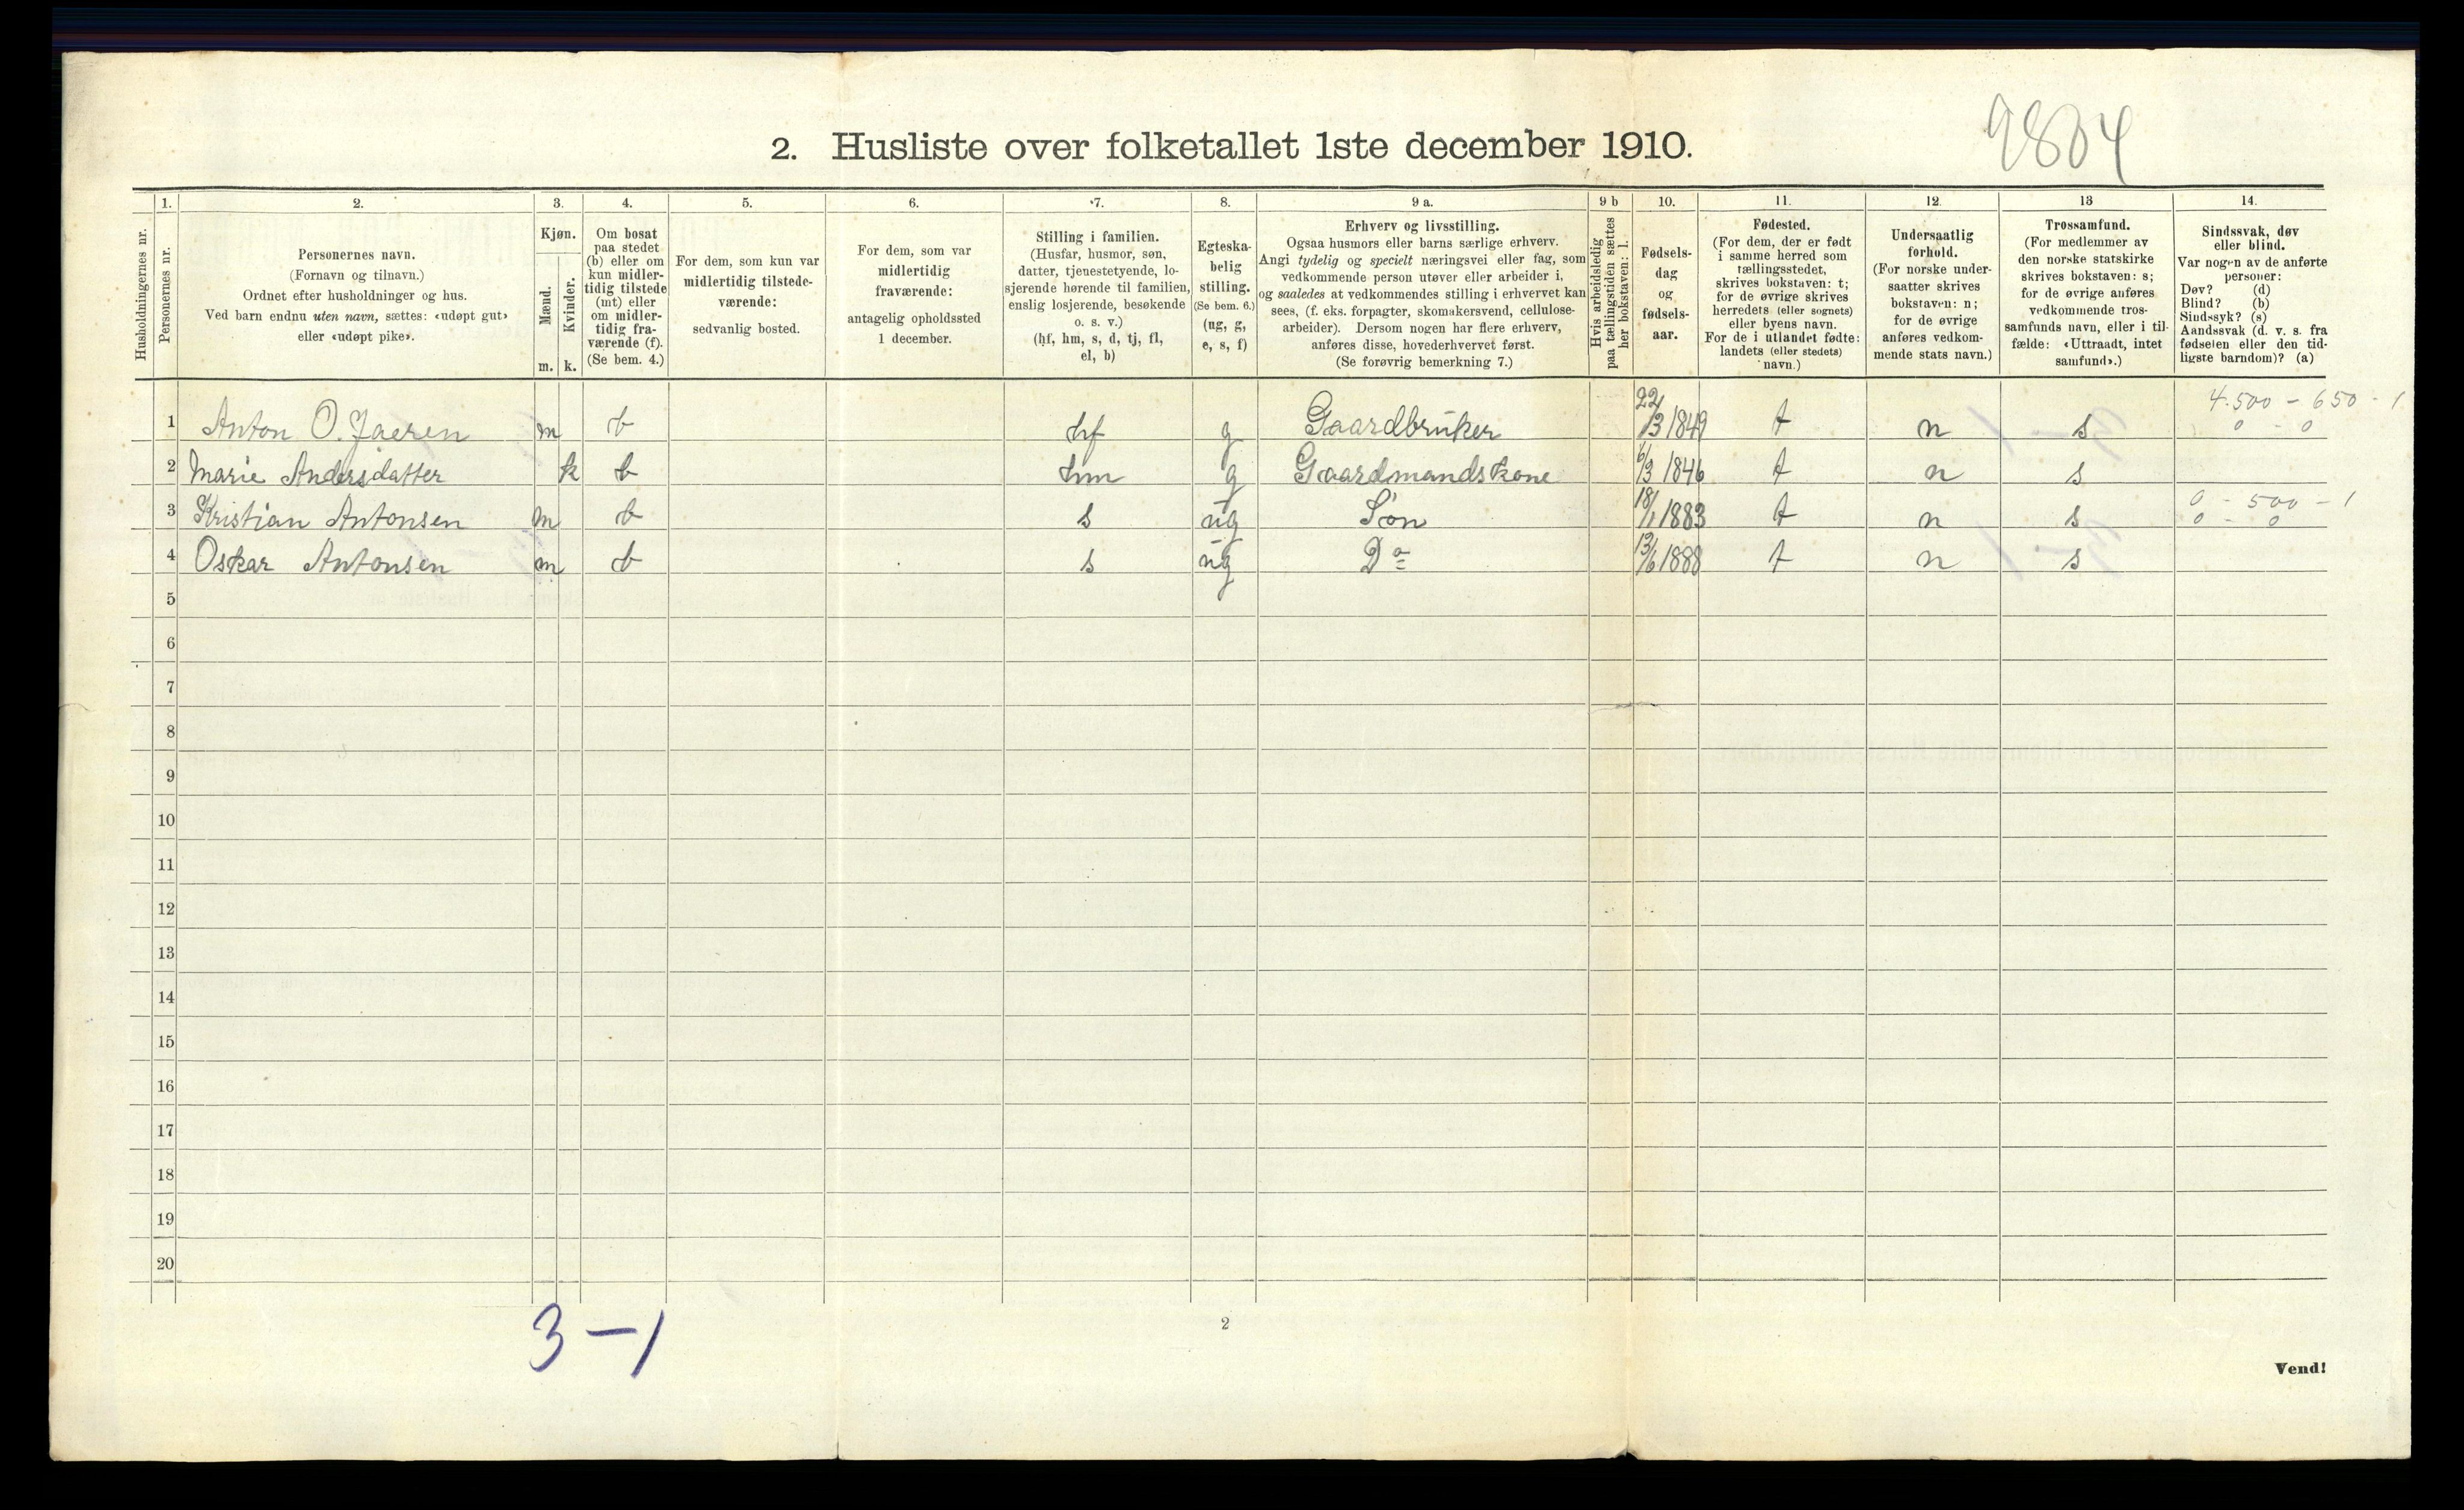 9804
2. Husliste over folketallet 1ste december 1910.
1. 2. 3. 4. 5. 6. 7. 8. 9 a. 9 b 10. 11. 12. 13 14.
Husholdningernes nr.
Personernes nr.
Personernes navn.
(Fornavn og tilnavn.)
Ordnet efter husholdninger og hus.
Ved barn endnu uten navn, sættes: «udøpt gut»
eller «udøpt pike».
Kjøn.
Mænd.
Kvinder.
m. k.
Om bosat
paa stedet
(b) eller om
kun midler-
tidig tilstede
(mt) eller
om midler-
tidig fra-
værende (f).
(Se bem. 4.)
For dem, som kun var
midlertidig tilstede-
værende:
sedvanlig bosted.
For dem, som var
midlertidig
fraværende:
antagelig opholdssted
1 december.
Stilling i familien.
(Husfar, husmor, søn,
datter, tjenestetyende, lo-
sjerende hørende til familien,
enslig losjerende, besøkende
o. s. v.)
(hf, hm, s, d, tj, fl,
el, b)
Egteska-
belig
stilling.
(Se bem. 6.)
(ug, g,
e, s, f)
Erhverv og livsstilling.
Ogsaa husmors eller barns særlige erhverv.
Angi tydelig og specielt næringsvei eller fag, som
vedkommende person utøver eller arbeider i,
og saaledes at vedkommendes stilling i erhvervet kan
sees, (f. eks. forpagter, skomakersvend, cellulose-
arbeider). Dersom nogen har flere erhverv,
anføres disse, hovederhvervet først.
(Se forøvrig bemerkning 7.)
Hvis arbeidsledig
paa tællingstiden sættes
her bokstaven: l.
Fødsels-
dag
og
fødsels-
aar.
Fødested.
(For dem, der er født
i samme herred som
tællingsstedet,
skrives bokstaven: t;
for de øvrige skrives
herredets (eller sognets)
eller byens navn.
For de i utlandet fødte:
landets (eller stedets)
navn.)
Undersaatlig
forhold.
(For norske under-
saatter skrives
bokstaven: n;
for de øvrige
anføres vedkom-
mende stats navn.)
Trossamfund.
(For medlemmer av
den norske statskirke
skrives bokstaven: s;
for de øvrige anføres
vedkommende tros-
samfunds navn, eller i til-
fælde: «Uttraadt, intet
samfund».)
Sindssvak, døv
eller blind.
Var nogen av de anførte
personer:
Døv? (d)
Blind? (b)
Sindssyk? (s)
Aandssvak (d. v. s. fra
fødselen eller den tid-
ligste barndom)? (a)
1 Anton O. Jaeren m b hf g Gaardbruker 22/3 1849 t n s 4.500 - 650 - 1
0 - 0
2 Marie Andersdatter k b hm g Gaardmandskone 6/3 1846 t n s
3 Kristian Antonsen m b s ug Søn 18/1 1883 t n s 0 - 500 - 1
0 - 0
4 Oskar Antonsen m b s ug Do 13/6 1888 t n s
5
6
7
8
9
10
11
12
13
14
15
16
17
18
19
20
3-1
2
Vend!